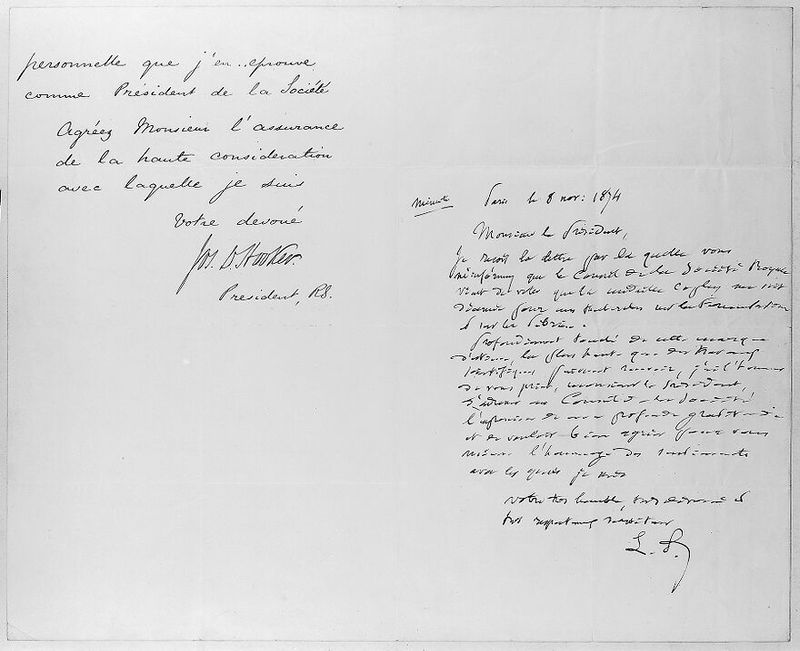 personnelle que j'en eprouve
comme Président de la Société
Agréez Monsieur l'assurance
de la haute consideration
avec laquelle je suis
Votre devoué
Jos. D. Hooker
President, RS.
Minute
Paris le 8 nov: 1874
Monsieur le Président,
Je reçois la lettre par la quelle vous
m'informez que le Conseil de la Société Royale
vient de voter que la médaille Copley me soit
décernée pour mes recherches sur la fermentation
et sur les
Profondément touché de cette marque
d'estime, la plus haute que des travaux
scientifiques puissent recevoir, j'ai l'honneur
de vous prier, monsieur le Président,
d'adresser au Conseil de la Société
l'expression de ma profonde gratitude
et de vouloir bien agréer pour vous
même l'hommage des sentiments
avec les quels je suis
votre très humble, très dévoué et
très respectueux serviteur
L. P.